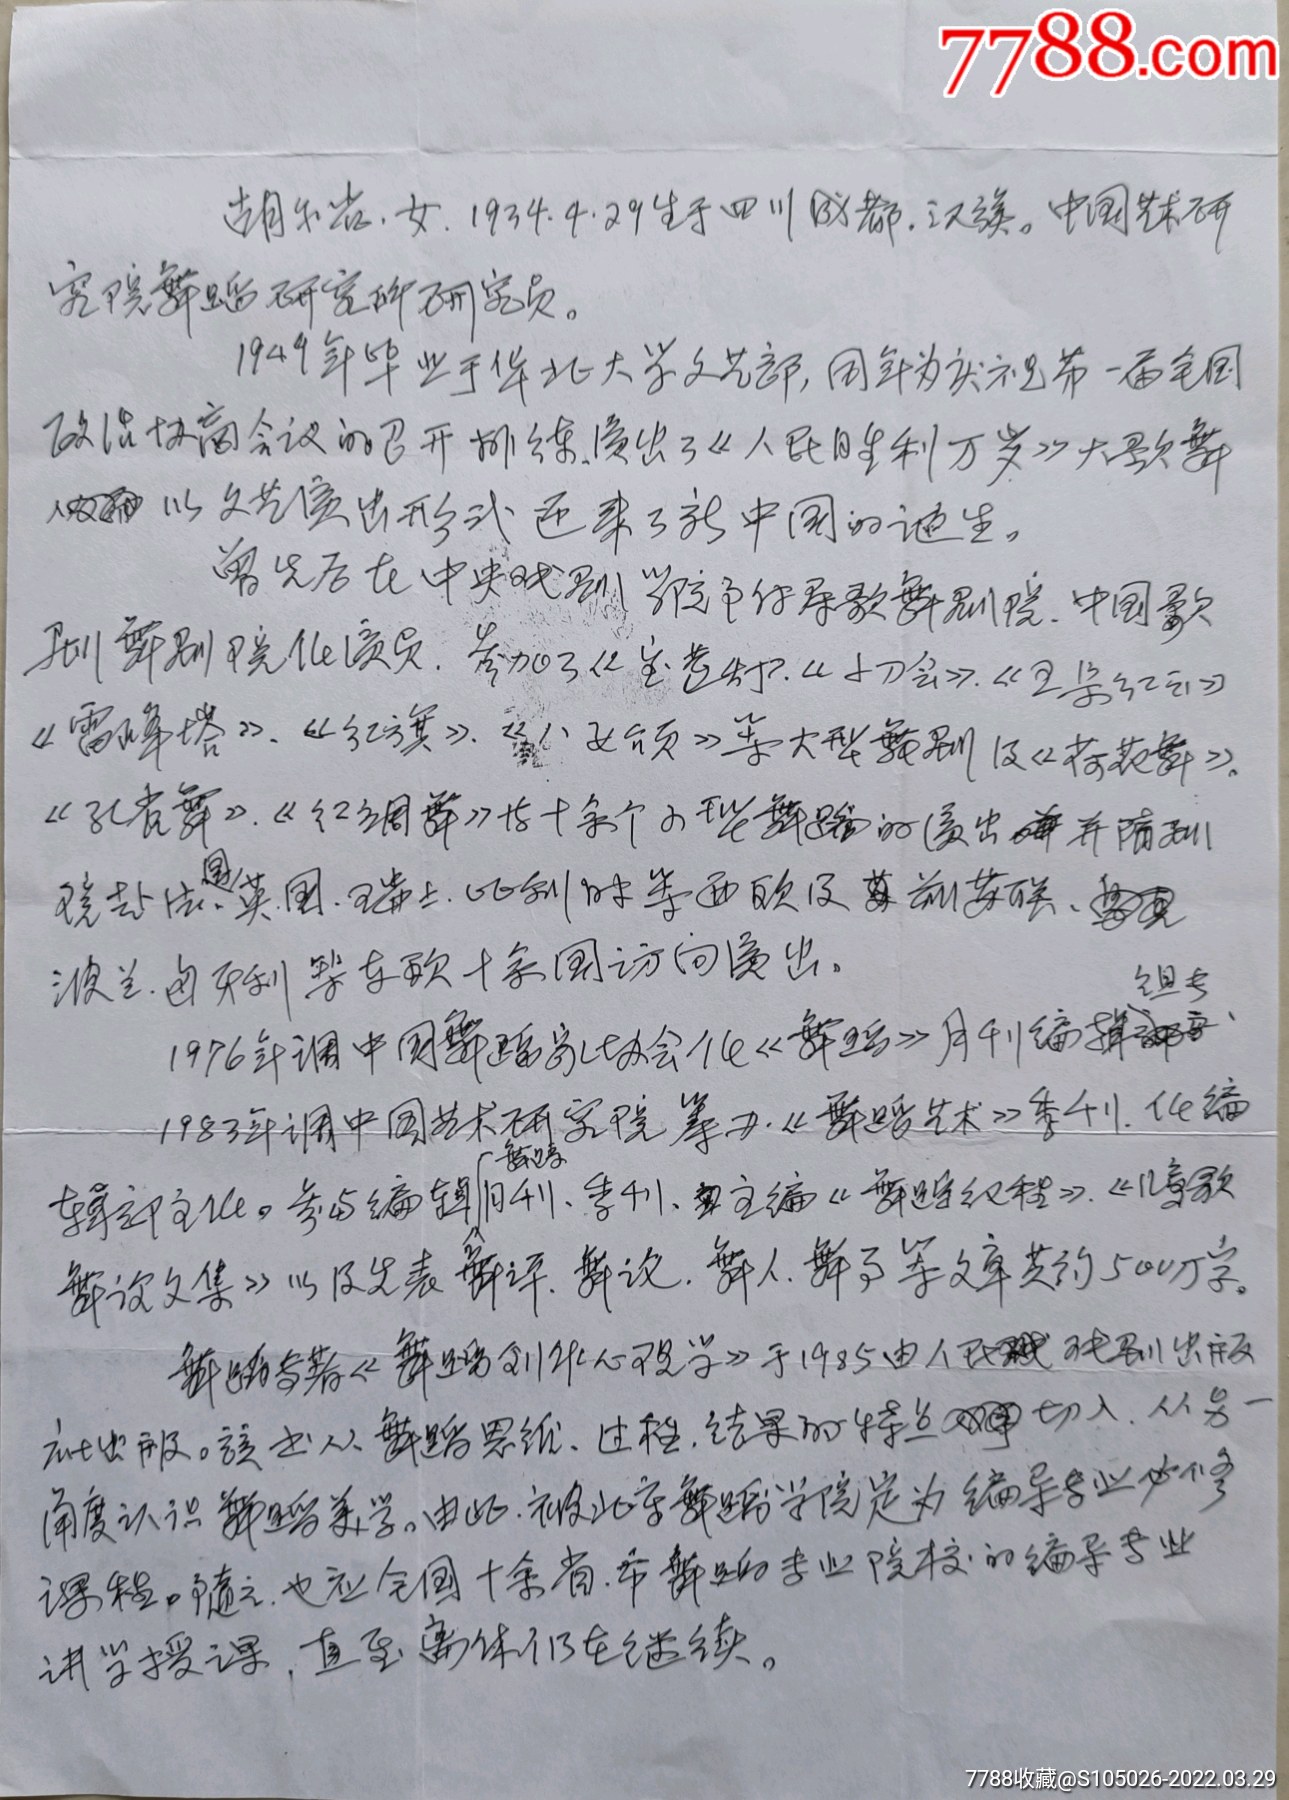 7788.com
胡尔岩.女.1934.4.29生于四川成都.汉族。中国艺术研
究院舞蹈研究所研究员。
1949年毕业于华北大学文艺部,同年为庆祝第一届全国
政治协商会议的召开排练、演出了《人民胜利万岁》大歌舞
以文艺演出形式迎来了新中国的诞生。
曾先后在中央戏剧学院 歌舞剧院.中国歌
剧舞剧院任演员.参加了《宝莲灯》.《小刀会》.《
《雷峰塔》、《红旗》.《八女颂》等大型舞剧及《荷花舞》.
《孔雀舞》.《红绸舞》等十余个小型舞蹈的演出 并随剧
院赴法国、英国.瑞士.比利时等西欧及 前苏联、
波兰.匈牙利等东欧十余国访问演出。
组长
1976年调中国舞蹈家协会任《舞蹈》月刊编辑
1983年调中国艺术研究院筹办.《舞蹈艺术》季刊.任编
舞蹈
辑部主任。参与编辑月刊、季刊、主编《舞蹈教程》.《儿童歌
舞论文集》以及发表舞评.舞论.舞人.舞事等文章共约500万字。
舞蹈专著《舞蹈创作心理学》于1985由人民 戏剧出版
社出版。该书从舞蹈思维、过程.结果的特点 切入.从另一
角度认识舞蹈美学。由此.被北京舞蹈学院定为编导专业必修
课程。随之.也应全国十余省.市舞蹈专业院校的编导专业
讲学授课,直至离休仍在继续。
7788收藏@S105026-2022.03.29